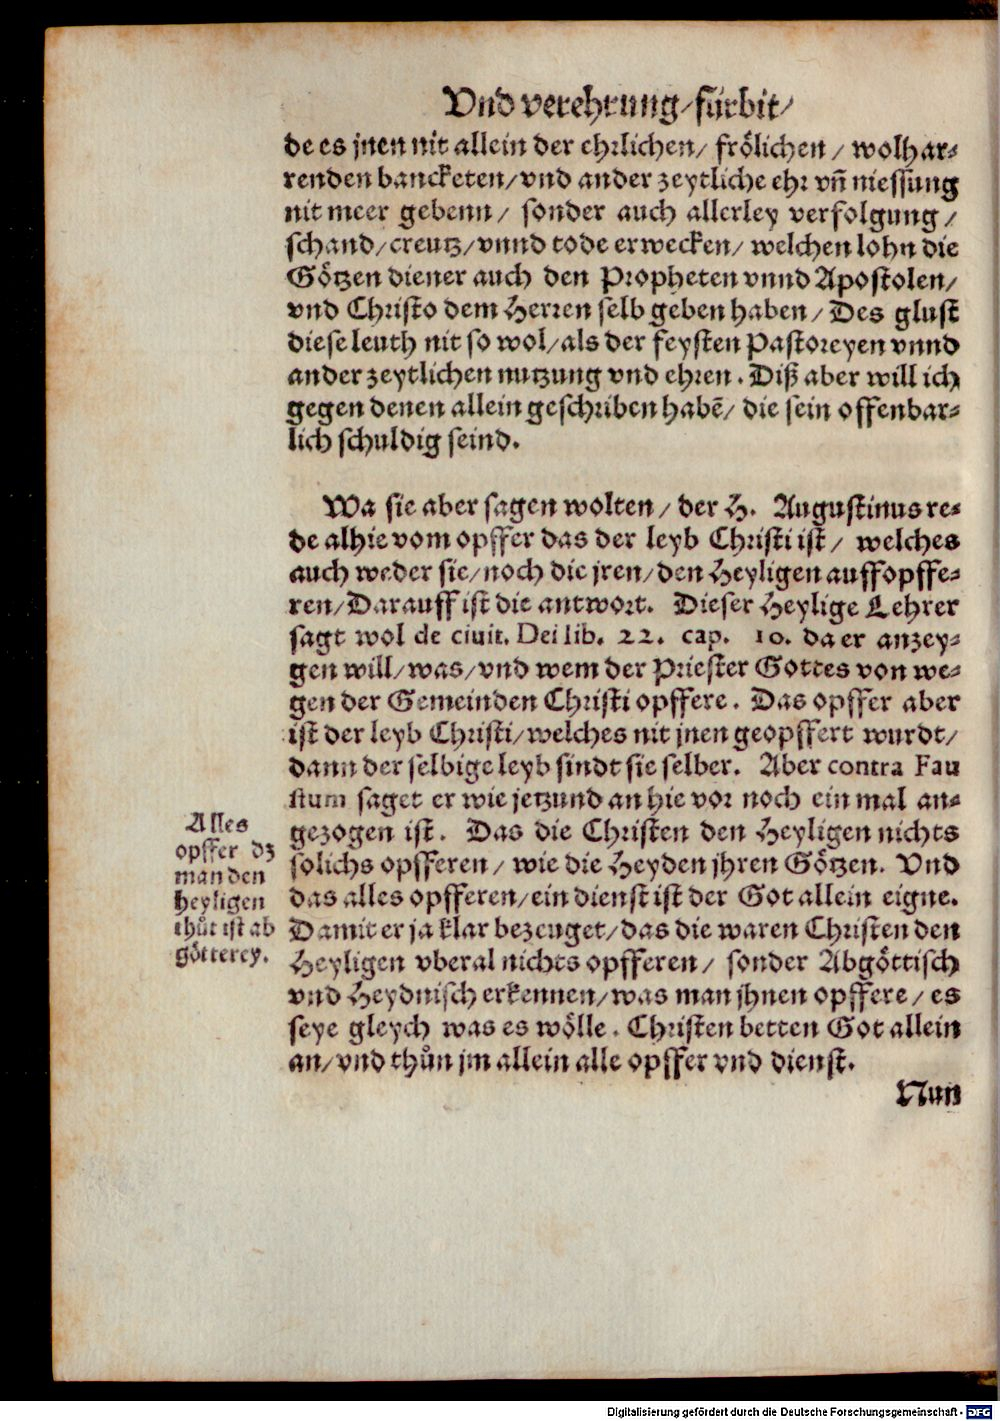 Vnd verehrung/fürbit/
de es jnen nit allein der ehrlichen/ frölichen / wolhar⸗
renden bancketen/vnd ander zeytliche ehr vñ niessung
nit meer gebenn / sonder auch allerley verfolgung /
schand/creutz/vnnd tode erwecken/ welchen lohn die
Götzen diener auch den Propheten vnnd Apostolen/
vnd Christo dem Herren selb geben haben / Des glust
diese leuth nit so wol/als der feysten Pastoreyen vnnd
ander zeytlichen nutzung vnd ehren. Diß aber will ich
gegen denen allein geschriben habē/ die sein offenbar⸗
lich schuldig seind.
Wa sie aber sagen wolten / der H. Augustinus re⸗
de alhie vom opffer das der leyb Christi ist / welches
auch weder sie/noch die jren/den Heyligen auffopffe⸗
ren/Darauff ist die antwort. Dieser Heylige Lehrer
sagt wol de ciuit. Dei lib. 22. cap. 10. da er anzey⸗
gen will/was/vnd wem der Priester Gottes von we⸗
gen der Gemeinden Christi opffere. Das opffer aber
ist der leyb Christi/welches nit jnen geopffert wurdt/
dann der selbige leyb sindt sie selber. Aber contra Fau
stum saget er wie jetzund an hie vor noch ein mal an⸗
gezogen ist. Das die Christen den Heyligen nichts
solichs opfferen / wie die Heyden jhren Götzen. Vnd
das alles opfferen/ein dienst ist der Got allein eigne.
Damit er ja klar bezeuget/das die waren Christen den
Heyligen vberal nichts opfferen / sonder Abgöttisch
vnd Heydnisch erkennen/was man jhnen opffere / es
seye gleych was es wölle. Christen betten Got allein
an/vnd thůn jm allein alle opffer vnd dienst.
Nun
Alles
opffer dz
man den
heyligen
thůt ist ab
götterey.
Digitalisierung gefördert durch die Deutsche Forschungsgemeinschaft - DFG